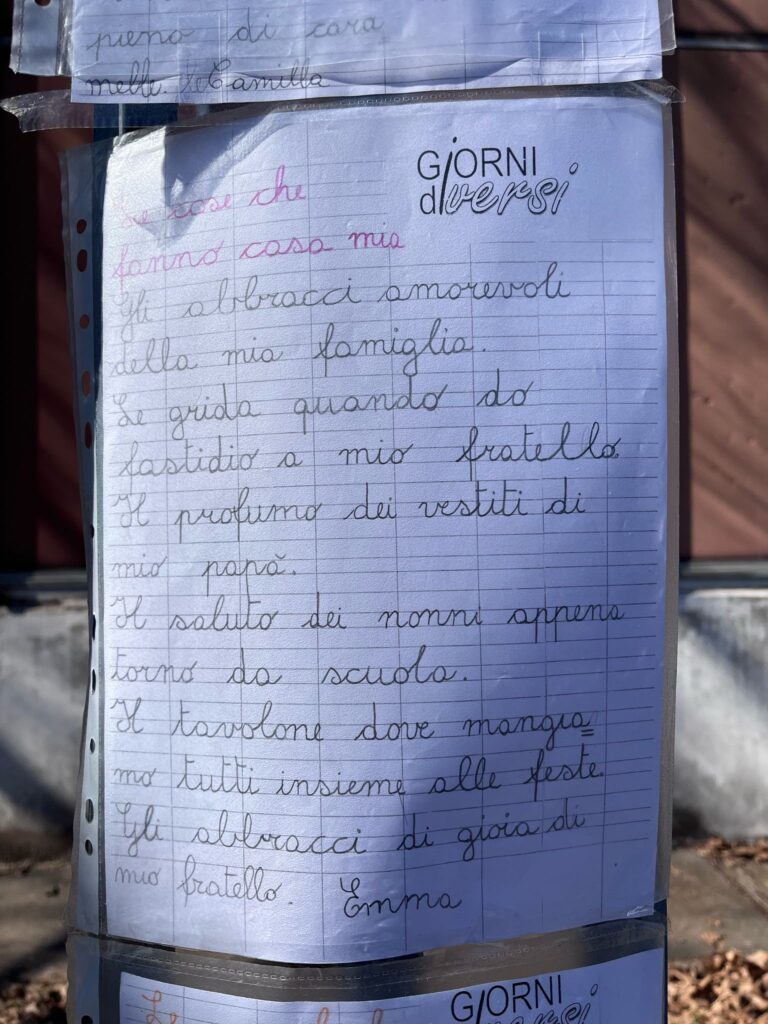 pieno di cara
melle. Camilla
GiORNI
diversi
Le cose che
fanno casa mia
Gli abbracci amorevoli
della mia famiglia.
Le grida quando do
fastidio a mio fratello.
Il profumo dei vestiti di
mio papà.
Il saluto dei nonni appena
torno da scuola.
Il tavolone dove mangia=
mo tutti insieme alle feste.
Gli abbracci di gioia di
mio fratello. Emma
GiORNI
diversi